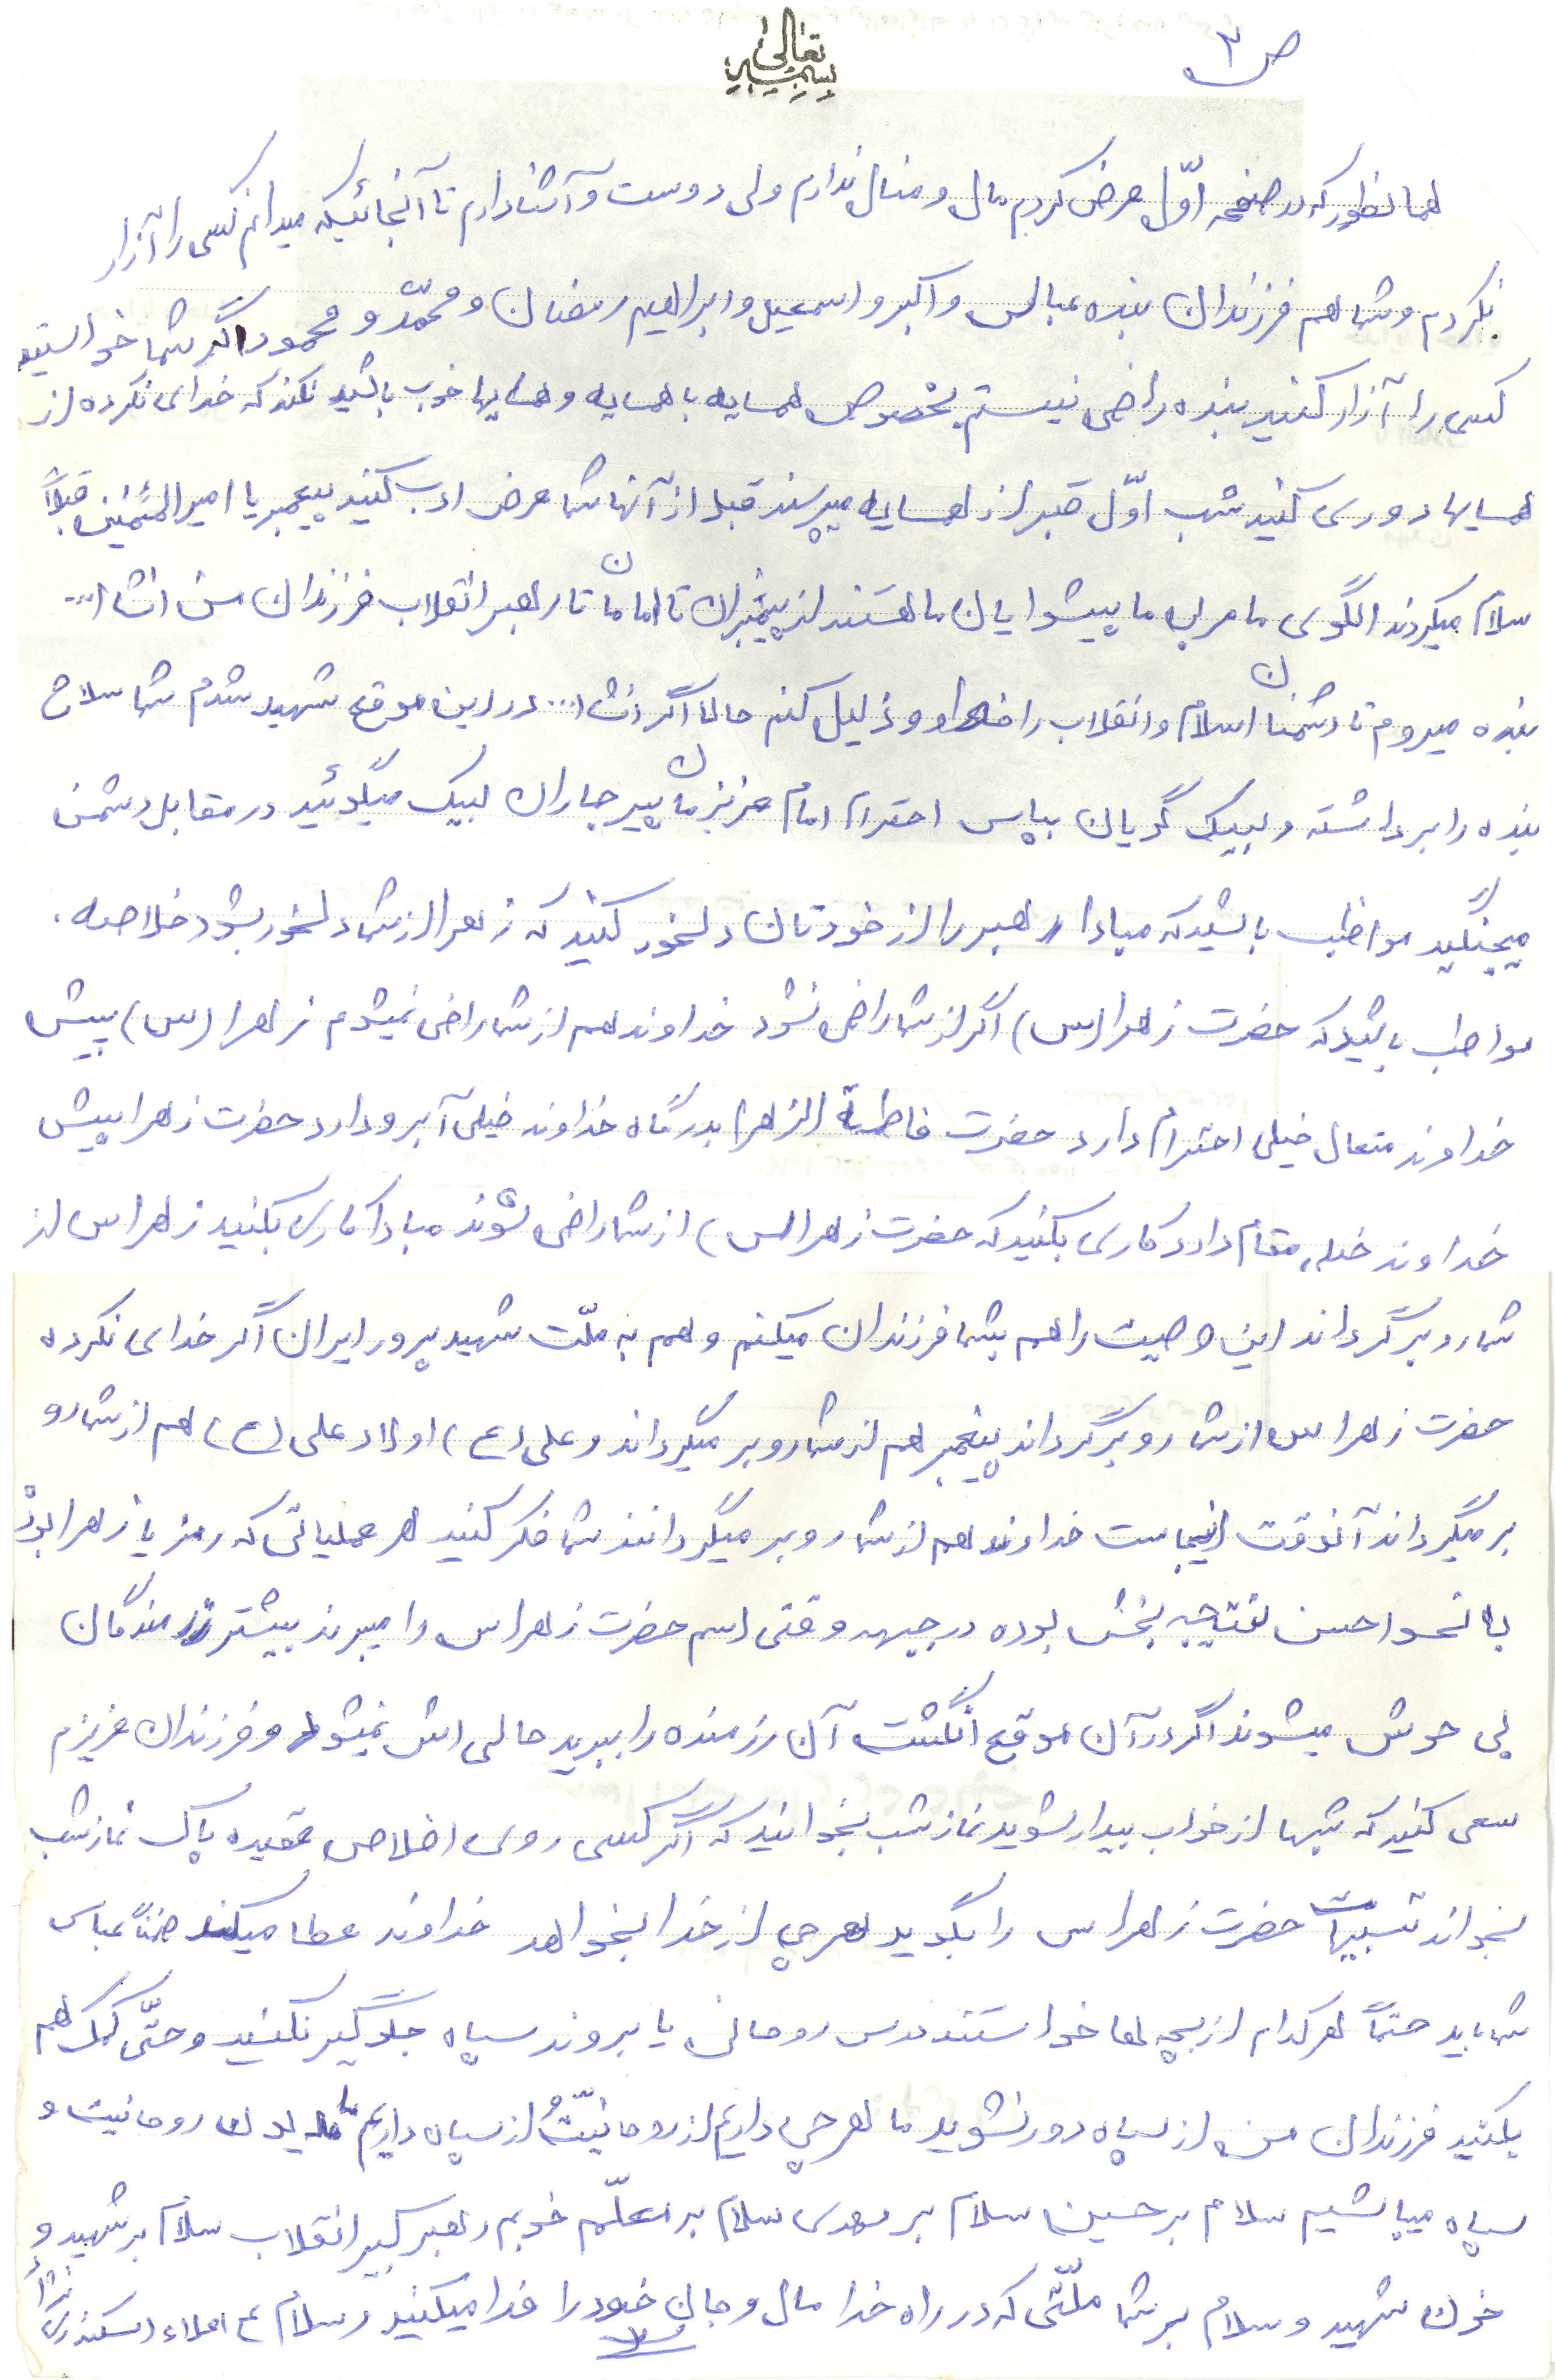 ص ۳
بسمه تعالی
همانطور که در صفحه اوّل عرض کردم مال و منال ندارم ولی دوست و آشنا دارم تا آنجائیکه میدانم کسی را آزار
نکردم و شما هم فرزندان بنده عباس و اکبر و اسمعیل و ابراهیم رمضان و محمّد و محمود اگر شما خواستید
کسی را آزار کنید بنده راضی نیستم بخصوص همسایه با همسایه و همسایها خوب باشید نکند که خدای نکرده از
همسایها دوری کنید شب اوّل قبر از همسایه میپرسند قبل از آنها شما عرض ادب کنید پیغمبر یا امیرالمئمنین قبلاً
سلام میکردند الگوی ما مربی ما پیشوایان ما هستند از پیغمبران تا امامان ما تا رهبر انقلاب فرزندان من انشاا...
بنده میروم تا دشمنان اسلام و انقلاب را خوار و ذلیل کنم حالا اگر انشاا... در این موقع شهید شدم شما سلاح
بنده را برداشته و لبیک گویان بپاس احترام امام عزیزمان پیر جماران لبیک میگوئید در مقابل دشمن
میجنگید مواظب باشید که مبادا رهبر را از خودتان دلخور کنید که زهرا از شما دلخور بشود خلاصه.
مواظب باشید که حضرت زهرا (س) اگر از شما راضی نشود خداوند هم از شما راضی نمیشود زهرا (س) پیش
خداوند متعال خیلی احترام دارد حضرت فاطمة الزهرا بدرگاه خداوند خیلی آبرو دارد حضرت زهرا پیش
خداوند خیلی مقام دارد کاری بکنید که حضرت زهرا (س) از شما راضی بشوند مبادا کاری بکنید زهرا س از
شما رو برگرداند این وصیت را هم بشما فرزندان میکنم و هم به ملّت شهید پرور ایران اگر خدای نکرده
حضرت زهرا س از شما رو برگرداند پیغمبر هم از شما رو بر میگرداند و علی (ع) اولاد علی (ع) هم از شما رو
بر میگرداند آنوقت اینجاست خداوند هم از شما رو بر میگردانند شما فکر کنید هر عملیاتی که رمز یا زهرا بود
با نحو احسن نتیجه بخش بوده در جبهه وقتی اسم حضرت زهرا س را میبرند بیشتر رزمندگان
بی حوش میشوند اگر در آن موقع انگشت آن رزمنده را ببرید حالی اش نمیشود و فرزندان عزیزم
سعی کنید که شبها از خواب بیدار بشوید نماز شب بخوانید که اگر کسی روی اخلاص عقیده پاک نماز شب
بخواند تسبیهات حضرت زهرا س را بگوید هرچی از خدا بخواهد خداوند عطا میکند ضمناً عباس
شما باید حتماً هر کدام از بچه لها خواستند درس روحانی یا بروند سپاه جلوگیر نکنید و حتّی کمک هم
بکنید فرزندان من از سپاه دور نشوید ما هرچی داریم از روحانیّت و از سپاه داریم ما بدون روحانیت و
سپاه میپاشیم سلام بر حسین سلام بر مهدی سلام بر معلّم خوبم رهبر کبیر انقلاب سلام بر شهید و
خون شهید و سلام بر شما ملّتی که در راه خدا مال و جان خود را فدا میکنید وسلام ع املاء اسکندری